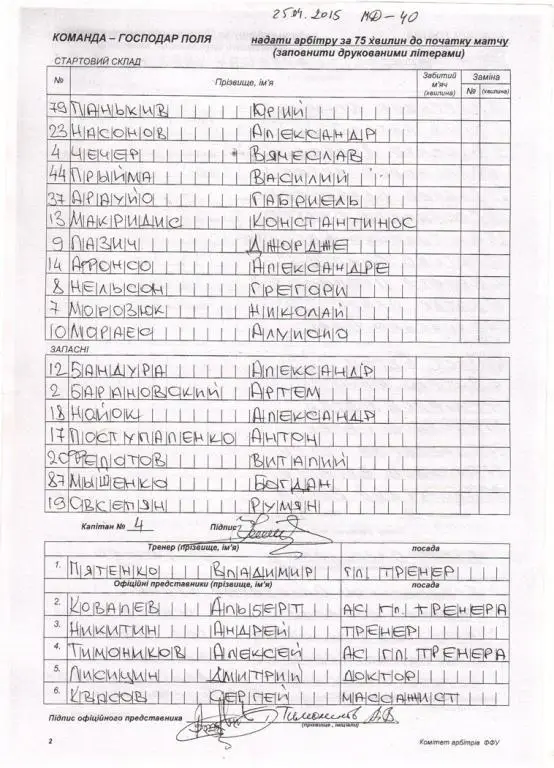 25.04.2015 МД-40
КОМАНДА – ГОСПОДАР ПОЛЯ надати арбітру за 75 хвилин до початку матчу
(заповнити друкованими літерами)
СТАРТОВИЙ СКЛАД
№ Прізвище, ім'я Забитий м'яч (хвилина) Заміна № (хвилина)
79 ПАНЬКИВ ЮРИЙ
23 НАСОНОВ АЛЕКСАНДР
4 ЧЕЧЕР ВЯЧЕСЛАВ
44 ПРЫЙМА ВАСИЛИЙ
37 АРАУЙО ГАБРИЕЛЬ
13 МАКРИДИС КОНСТАНТИНОС
9 ЛАЗИЧ ДЖОРДЖЕ
14 АФОНСО АЛЕКСАНДРЕ
8 НЕЛЬСОН ГРЕГОРИ
7 МОРОЗЮК НИКОЛАЙ
10 МОРАЕС АЛУИСИО
ЗАПАСНІ
12 БАНДУРА АЛЕКСАНДР
2 БАРАНОВСКИЙ АРТЕМ
18 НОЙОК АЛЕКСАНДР
17 ПОСТУПАЛЕНКО АНТОН
20 ФЕДОТОВ ВИТАЛИЙ
87 МЫШЕНКО БОГДАН
19 ОВСЕПЯН РУМЯН
Капітан № 4 Підпис
Тренер (прізвище, ім'я) посада
1. ПЯТЕНКО ВЛАДИМИР ГЛ ТРЕНЕР
Офіційні представники (прізвище, ім'я) посада
2. КОВАЛЕВ АЛЬБЕРТ АС ГЛ. ТРЕНЕРА
3. НИКИТИН АНДРЕЙ ТРЕНЕР
4. ТИМОНИКОВ АЛЕКСЕЙ АС ГЛ ТРЕНЕРА
5. ЛИСИЦИН ДМИТРИЙ ДОКТОР
6. КВАСОВ СЕРГЕЙ МАССАЖИСТ
Підпис офіційного представника Тимоников А.В.
(прізвище, ініціали)
2 Комітет арбітрів ФФУ